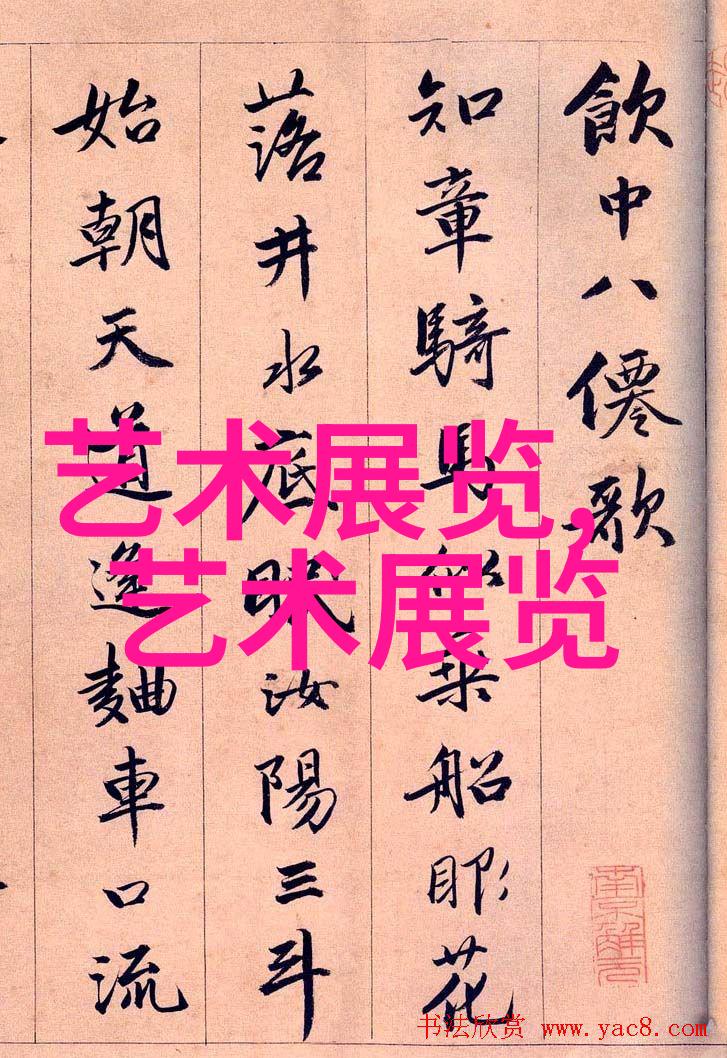 飲中八僊歌
知章騎馬似乘船眼花
落井水底眠汝陽三斗
始朝天道逢麯車口流
艺术展览,
艺术展览
南京解元
书法欣赏 www.yac8.com